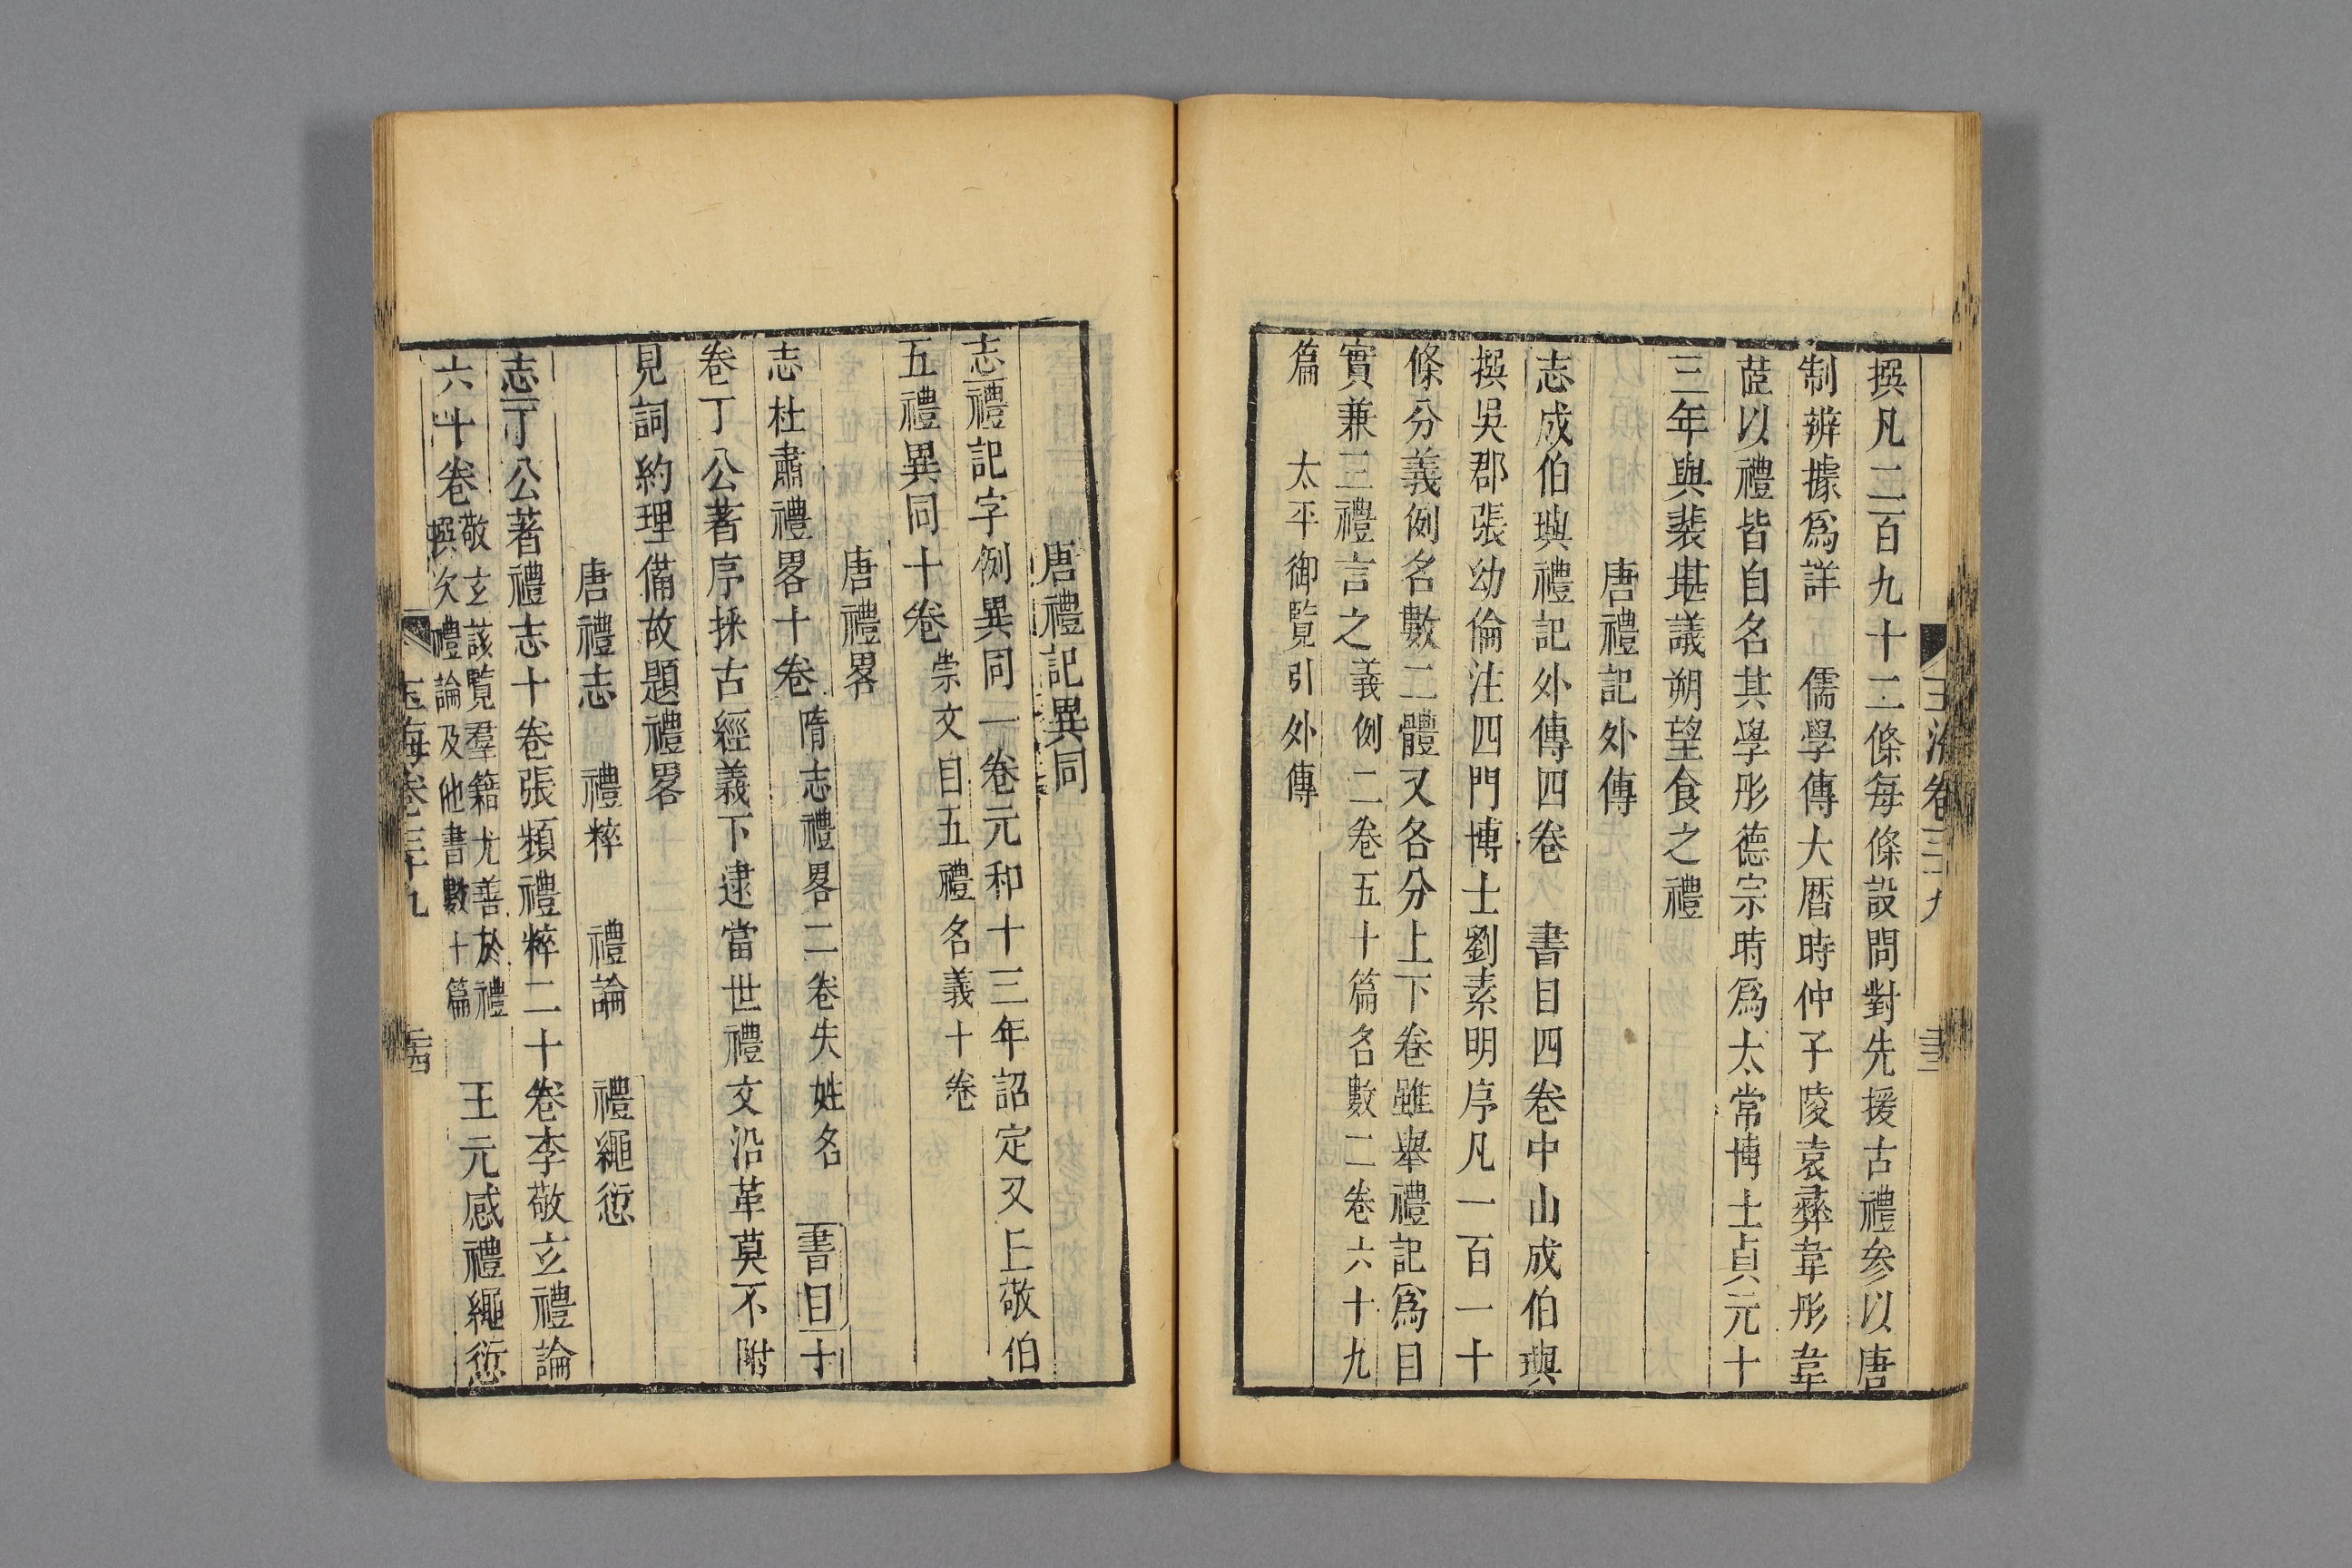 撰凡二百九十二條每條設問對先援古禮參以唐
制辨據爲詳 儒學傳大曆時仲子陵袁彝韋彤韋
茝以禮皆自名其學彤德宗時爲太常博士貞元十
三年與裴堪議朔望食之禮
唐禮記外傳
志成伯璵禮記外傳四卷 書目四卷中山成伯璵
撰吳郡張幼倫注四門博士劉素明序凡一百一十
條分義例名數二體又各分上下卷雖舉禮記爲目
實兼三禮言之義例二卷五十篇名數二卷六十九
篇 太平御覽引外傳
唐禮記異同
志禮記字例異同一卷元和十三年詔定又丄敬伯
五禮異同十卷崇文目五禮名義十卷
唐禮畧
志杜肅禮畧十卷隋志禮畧二卷失姓名 書目十
卷丁公著序採古經義下逮當世禮文沿革莫不附
見詞約理備故題禮畧
唐禮志 禮粹 禮論 禮繩愆
志丁公著禮志十卷張頻禮粹二十卷李敬玄禮論
六十卷敬玄該覽羣籍尤善於禮
撰次禮論及他書數十篇 王元感禮繩愆
玉海卷三十九